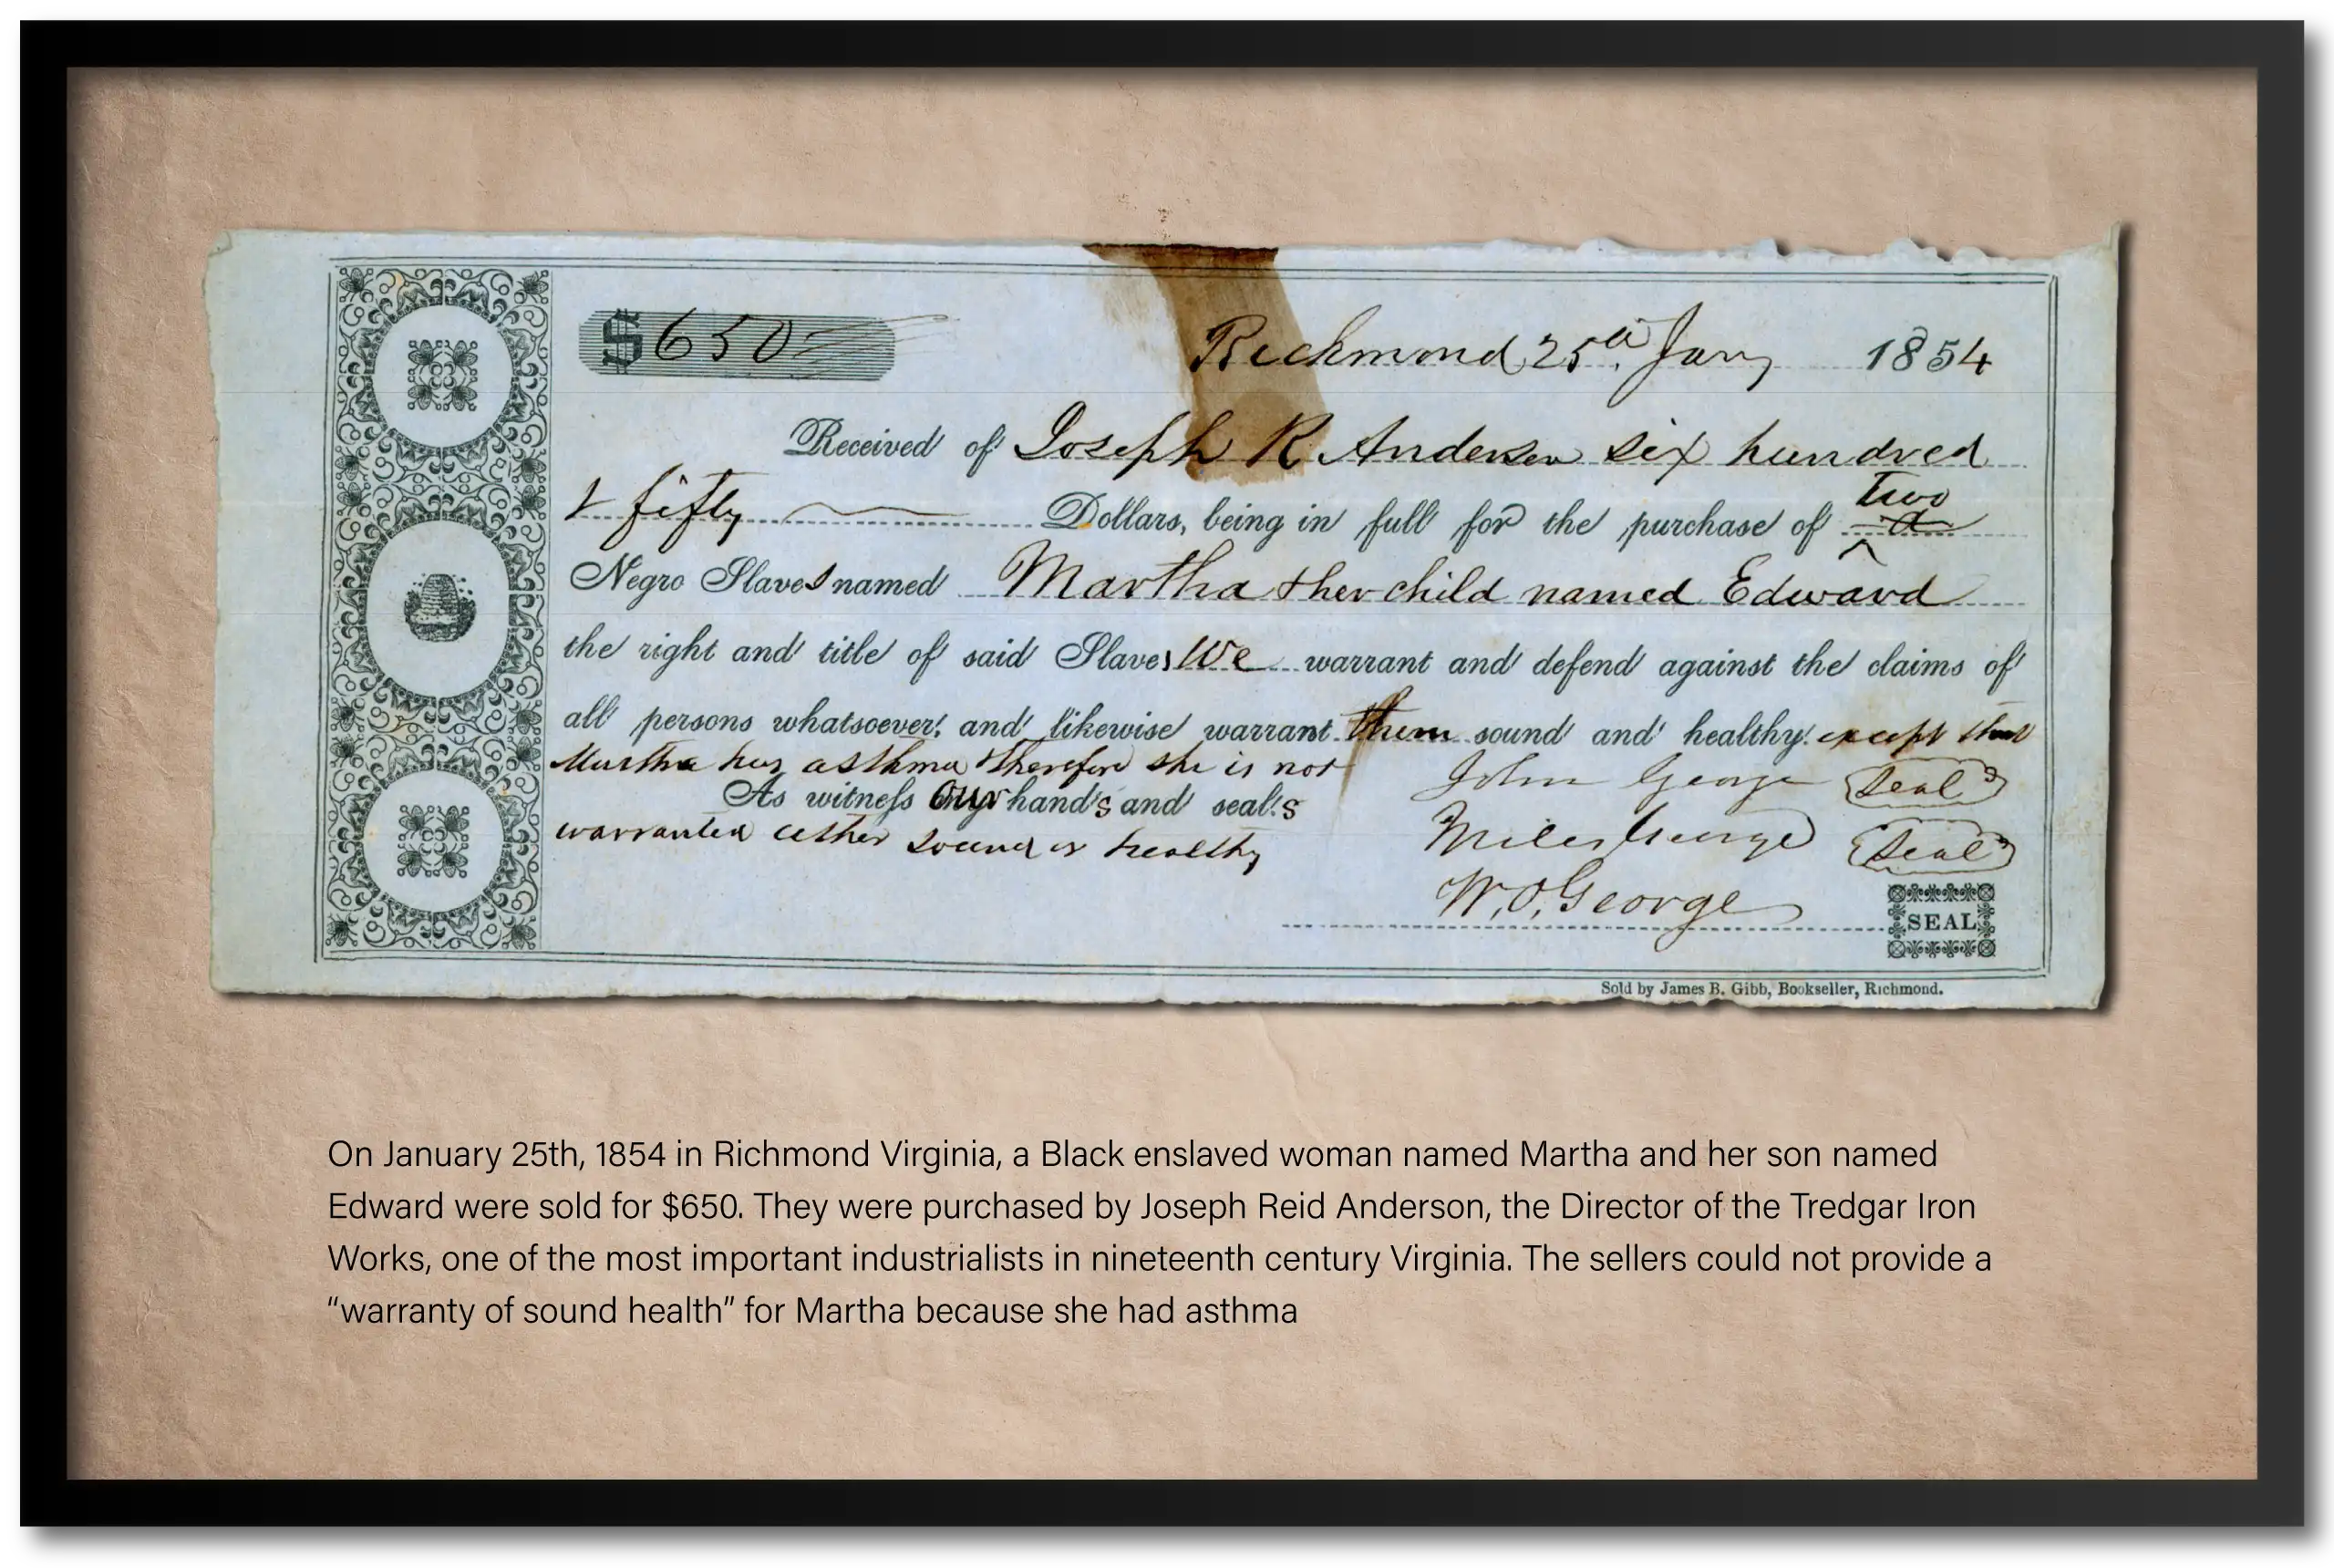 $650
Richmond 25th Jany 1854
Received of Joseph R Anderson six hundred
& fifty Dollars, being in full for the purchase of a Two
Negro Slaves named Martha & her child named Edward
the right and title of said Slaves We warrant and defend against the claims of
all persons whatsoever, and likewise warrant them sound and healthy. except that
Martha has asthma & therefore she is not
As witness our hands and seals
warranted either sound or healthy
John George Seal
Miles George Seal
W. O. George SEAL
Sold by James B. Gibb, Bookseller, Richmond.
On January 25th, 1854 in Richmond Virginia, a Black enslaved woman named Martha and her son named
Edward were sold for $650. They were purchased by Joseph Reid Anderson, the Director of the Tredgar Iron
Works, one of the most important industrialists in nineteenth century Virginia. The sellers could not provide a
“warranty of sound health” for Martha because she had asthma